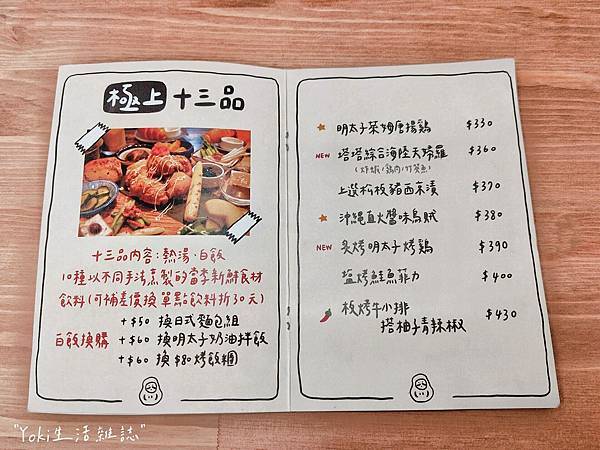 極上十三品
十三品內容:熱湯·白飯
10種以不同手法烹製的當季新鮮食材
飲料(可補差價換單點飲料折30元)
白飯換購
+$50 換日式麵包組
+$60 換明太子奶油拌飯
+$60 換$80烤飯糰
明太子萊姆唐揚鷄 $330
NEW 塔塔綜合海陸天婦羅 $360
(炸蝦/鷄肉/竹筴魚)
上選松板豬西京漬 $370
沖繩直火醬味烏賊 $380
NEW 炙烤明太子烤鷄 $390
塩烤鮭魚菲力 $400
板烤牛小排
搭柚子青辣椒 $430
"Yoki生活雜誌"